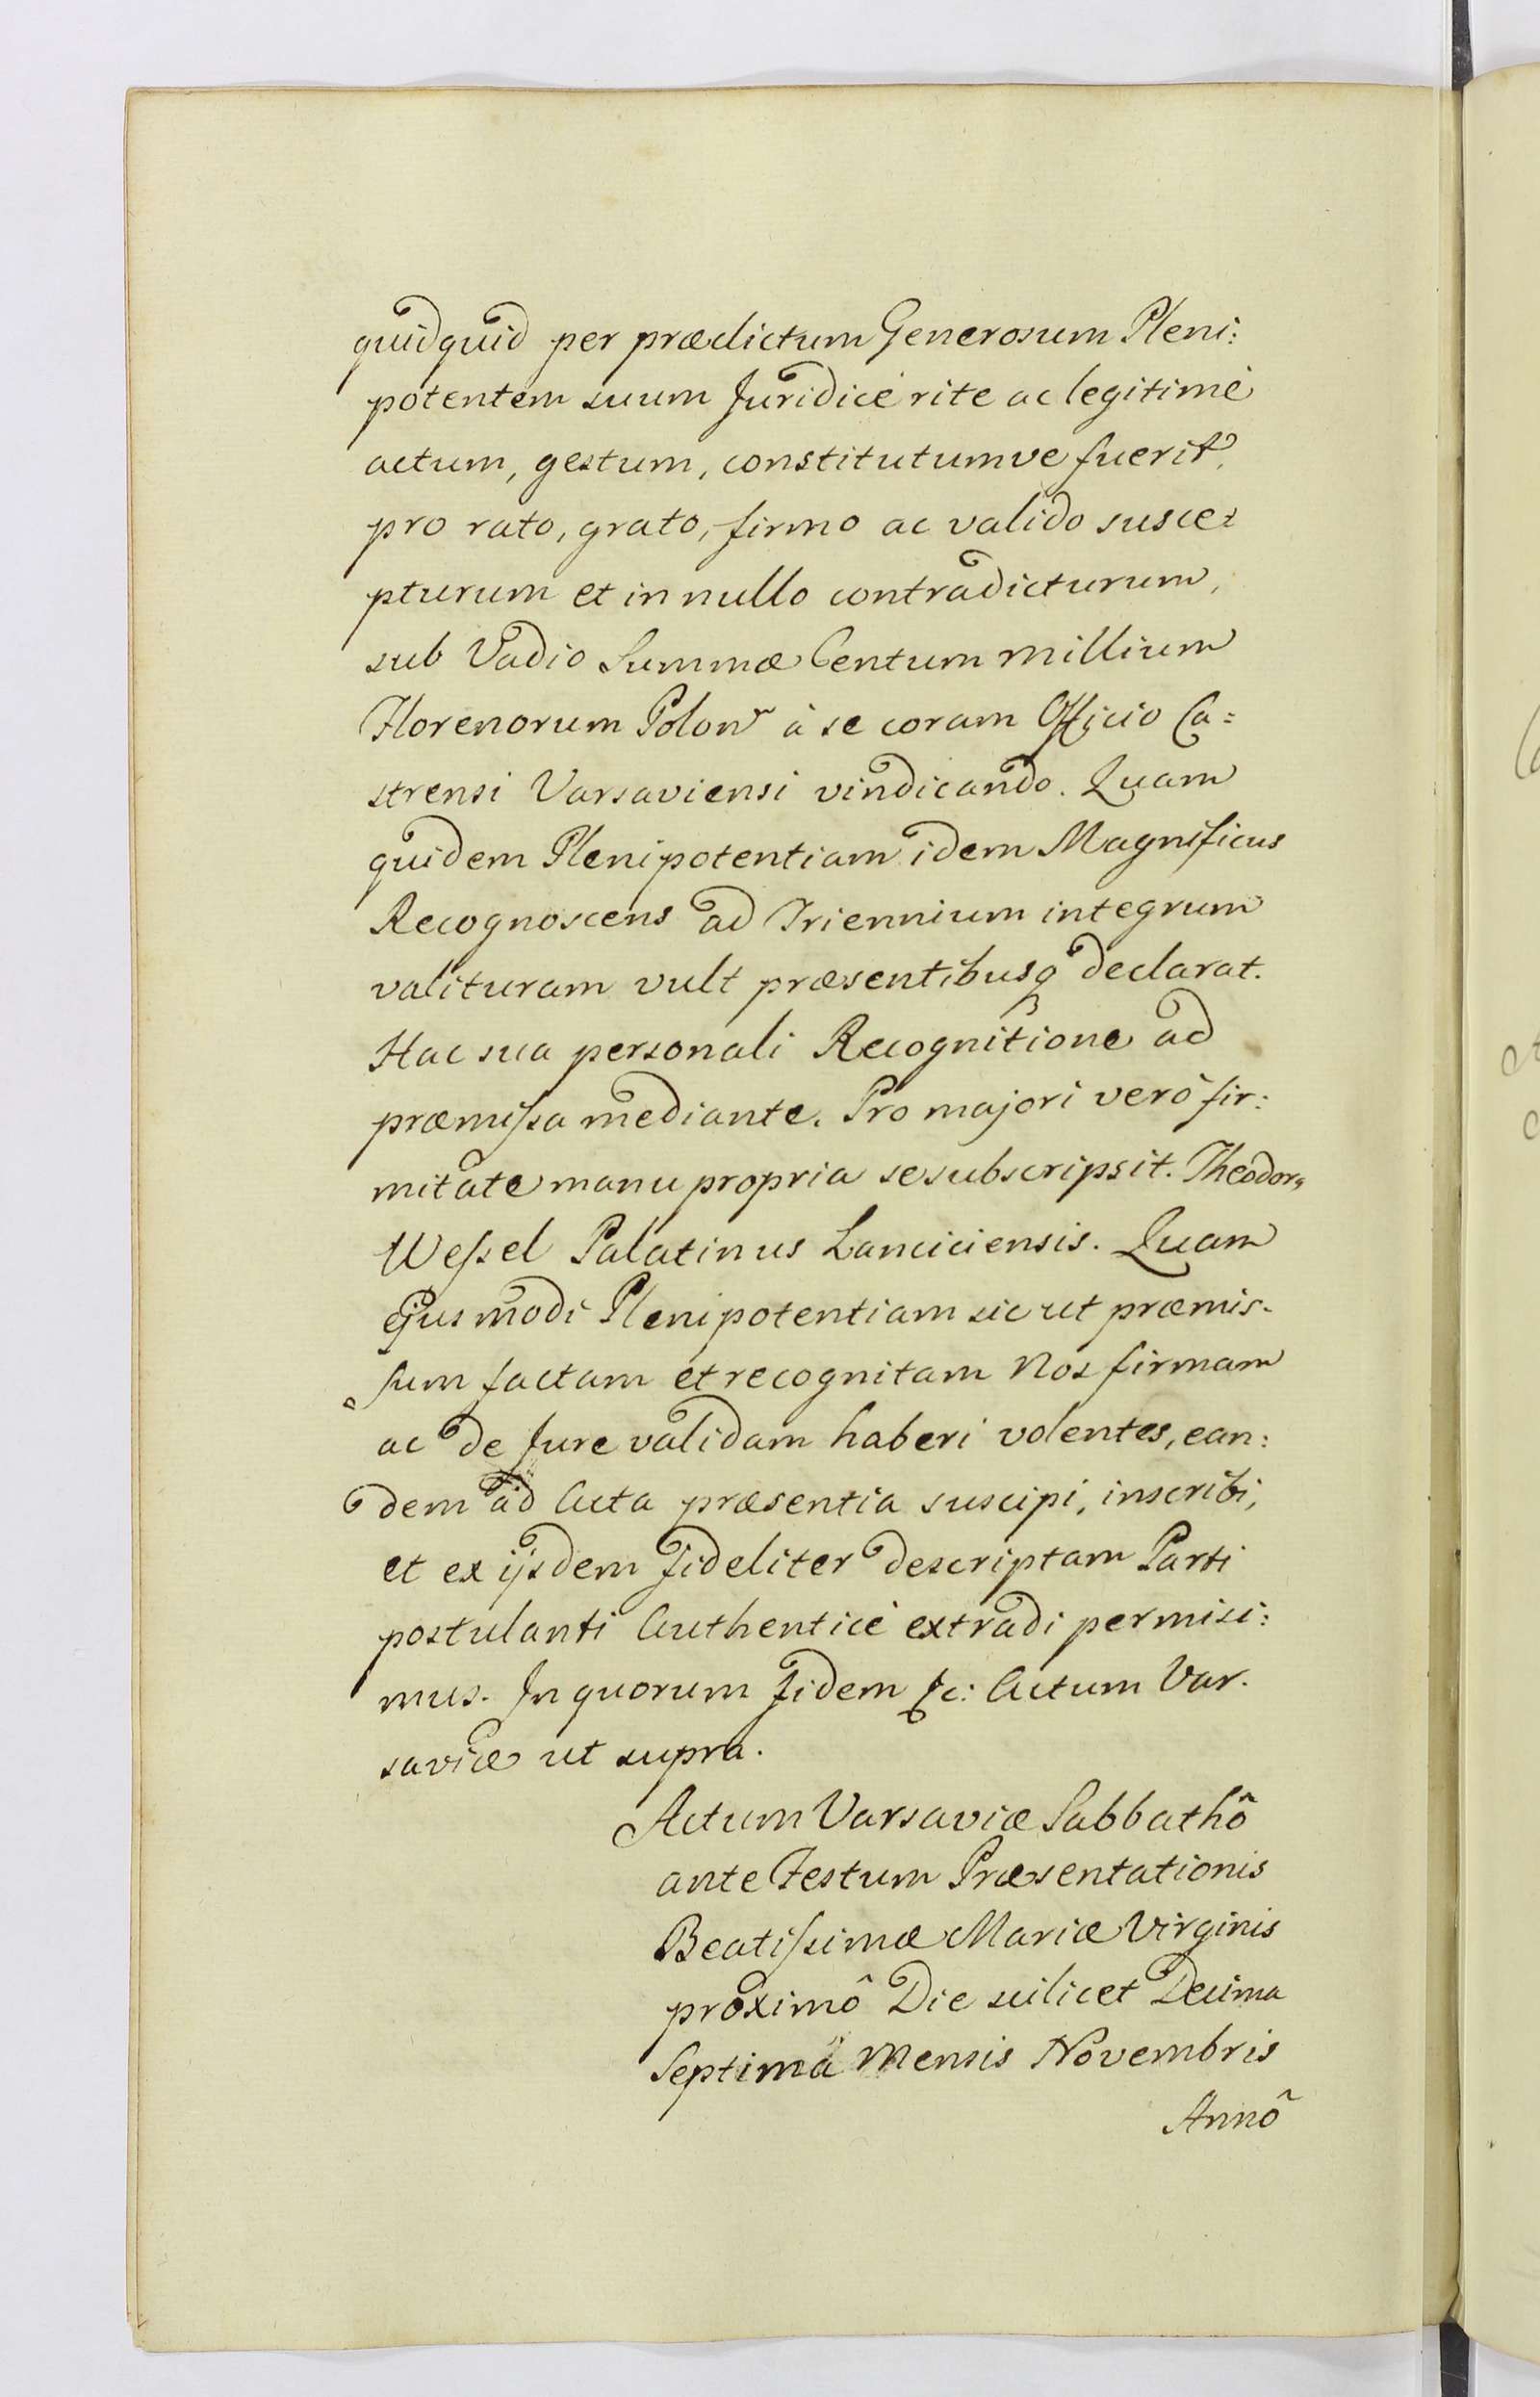 quidquid per prædictum Generosum Pleni:
potentem suum Juridicè rite ac legitimè
actum, gestum, constitutumve fuerit,
pro rato, grato, firmo ac valido susce:
pturum et in nullo contradicturum,
sub Vadio Summæ Centum millium
Florenorum Polon à se coram Officio Ca=
strensi Varsaviensi vindicando. Quam
quidem Plenipotentiam idem Magnificus
Recognoscens ad Triennium integrum
valituram vult præsentibusq declarat.
Hac sua personali Recognitione ad
præmissa mediante. Pro majori verò fir:
mitate manu propria se subscripsit. Theodorꝰ
Wessel Palatinus Lanciciensis. Quam
ejusmodi Plenipotentiam sic ut præmis-
sum factam et recognitam Nos firmam
ac de Jure validam haberi volentes, ean:
dem ad Acta præsentia suscipi, inscribi,
et ex ijsdem fideliter descriptam Parti
postulanti Authenticè extradi permisi:
mus. In quorum fidem &c: Actum Var.
saviæ ut supra.
Actum Varsaviæ Sabbathô
ante Festum Præsentationis
Beatissimæ Mariæ Virginis
proximô Die scilicet Decima
Septima Mensis Novembris
Annô